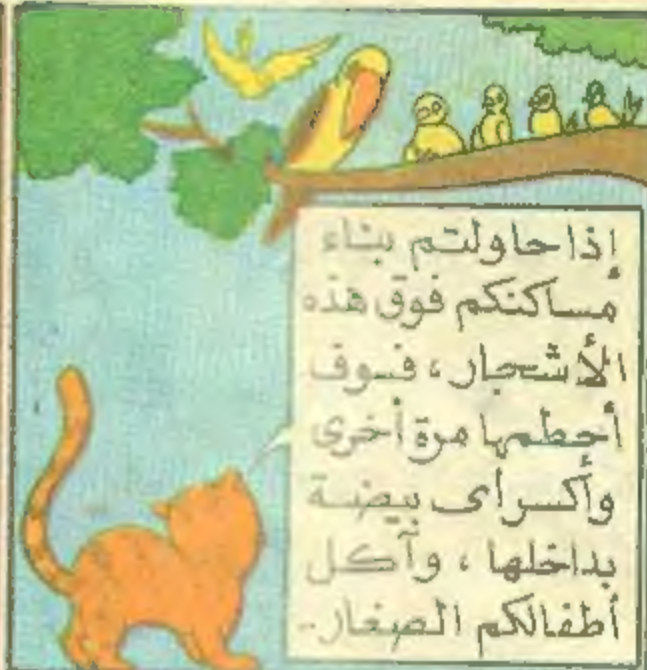 إذا حاولتم بناء
مساكنكم فوق هذه
الأشجار، فسوف
أحطمها مرة أخرى
وأكسر أى بيضة
بداخلها، وآكل
أطفالكم الصغار..